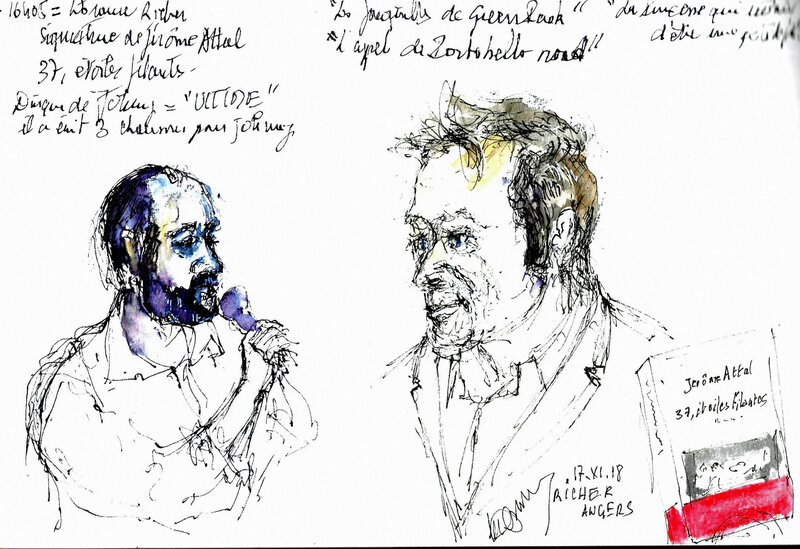 16h05 = Librairie Richer
Signature de Jérôme Attal
37, étoiles filantes.
Disque de Johnny = "ULTIME"
il a écrit 3 chansons pour Johnny
"Les Jonquilles de Green Park"
"L'appel de Portobello road"
Jérôme Attal
37, étoiles filantes
Roman
.17.XI.18
RICHER
ANGERS